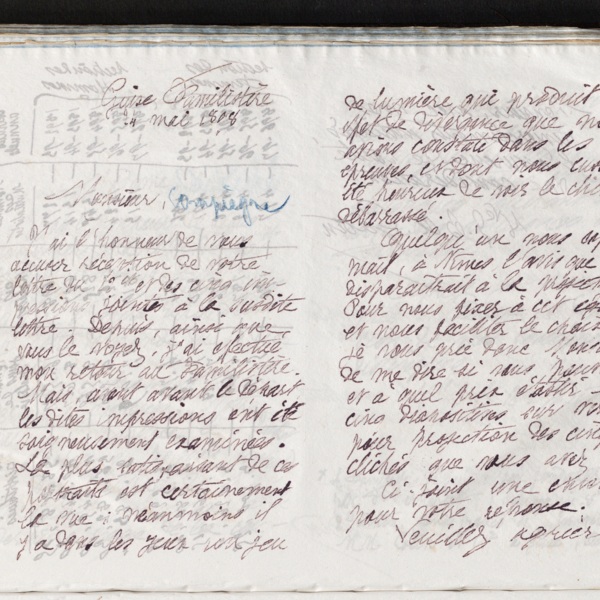 Guise Familistère
24 mai 1898
Monsieur, Compiègne
J'ai l'honneur de vous
accuser réception de votre
lettre du et des cinq im-
pressions jointes à la susdite
lettre. Depuis, ainsi que
vous le voyez, j'ai effectué
mon retour au Familistère.
Mais, avant le départ
les dites impressions ont été
soigneusement examinées.
Le plus satisfaisant de ces
portraits est certainement
le néanmoins il
y a dans les yeux un jeu
de lumière qui produit
effet de que
avions constaté dans les
épreuves, et dont nous
été heureux de voir le
débarrassé.
Quelqu'un nous
mait, à Nîmes l'avis que
disparaîtrait à la
Pour nous fixer à cet
et nous faciliter le choix
je vous prie donc
de me dire si vous
et à quel prix établir
cinq diapositives sur
pour projection des cinq
clichés que vous avez
Ci-joint une
pour votre réponse.
Veuillez agréer